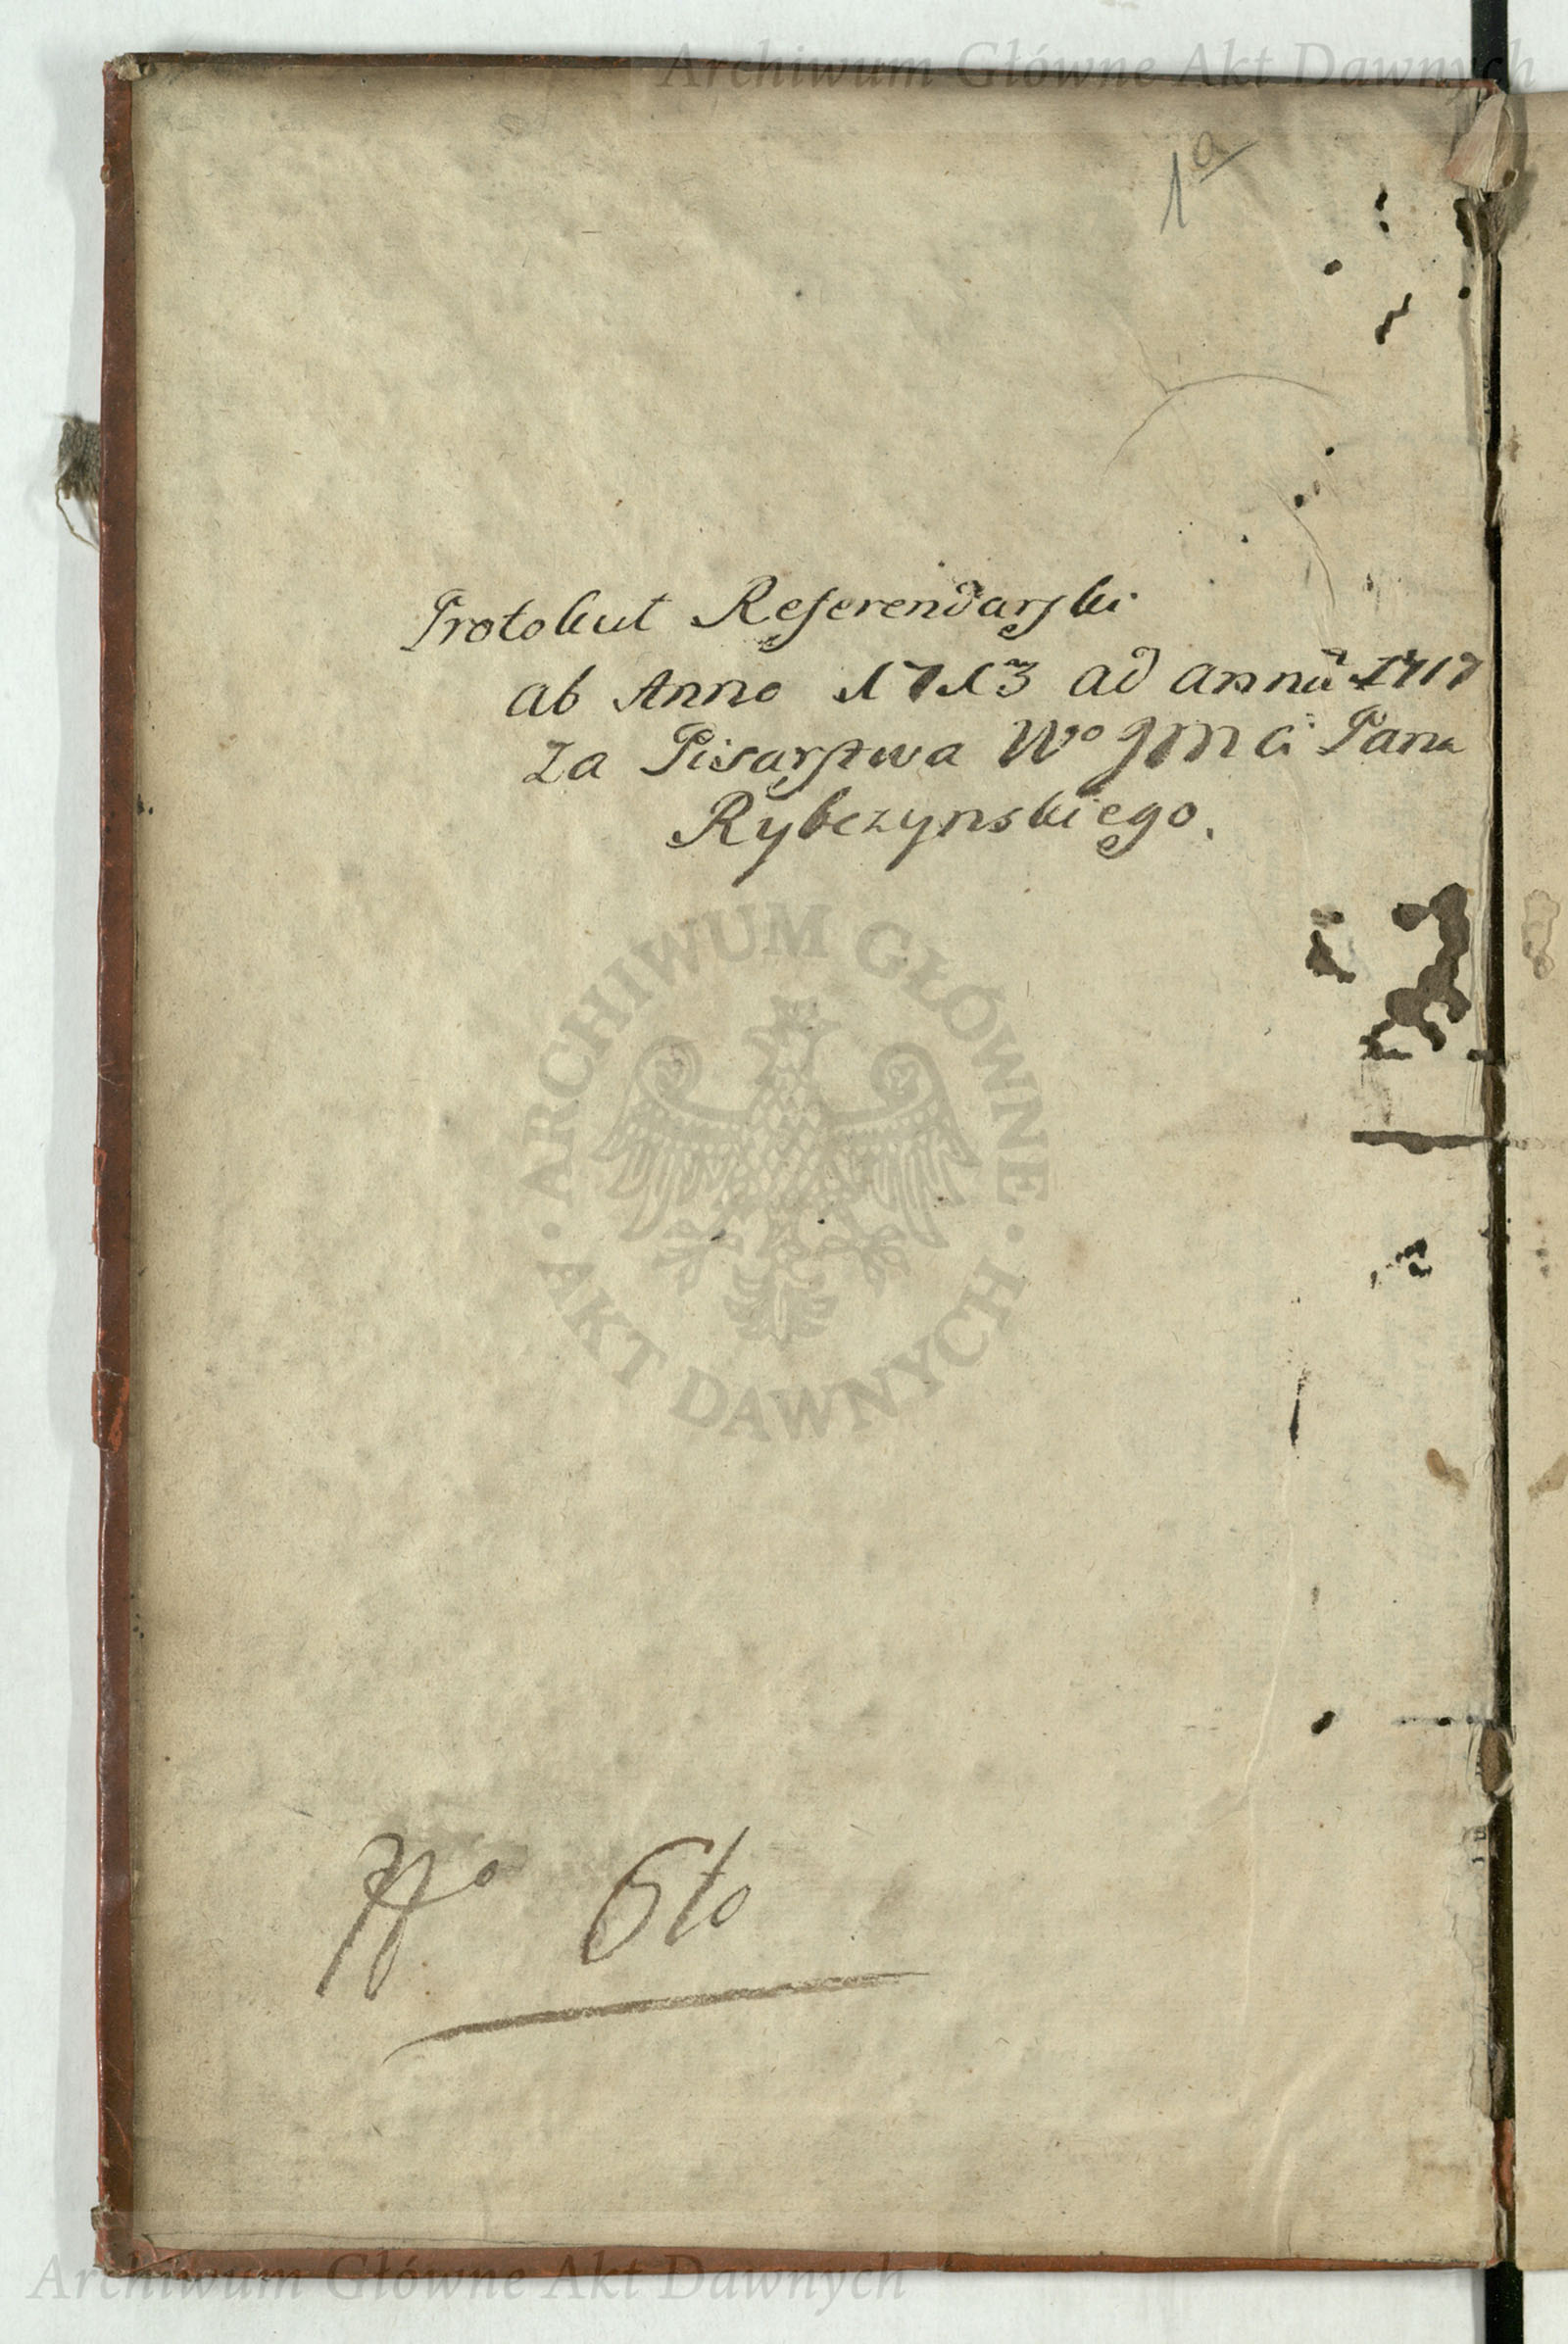 Archiwum Główne Akt Dawnych
1a
Protokuł Referendarski
ab Anno 1713 ad annũ 1717
za Pisarstwa Wo JMCi Pana
Rybczynskiego.
ARCHIWUM GŁÓWNE
AKT DAWNYCH
No 6to
Archiwum Główne Akt Dawnych